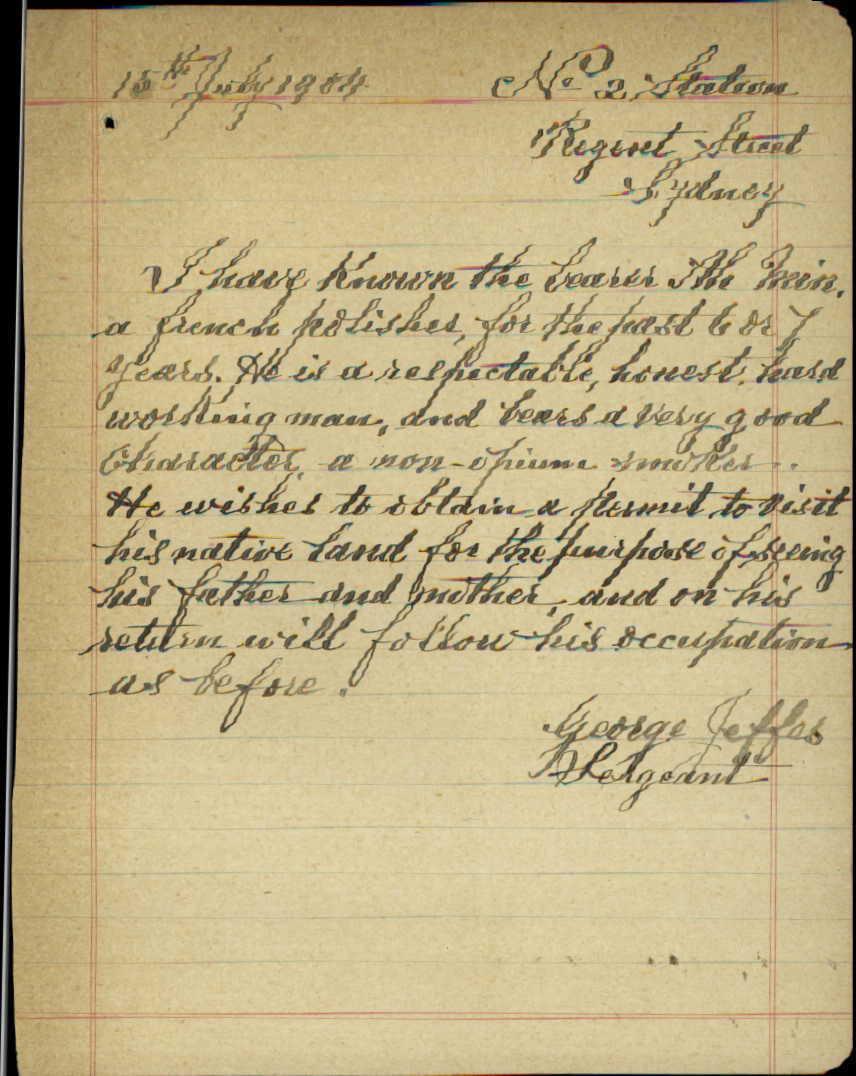 15th July 1904
No 2 Station
Regent Street
Sydney
I have known the bearer Mein,
a french polisher, for the past 6 or 7
years. He is a respectable, honest, hard
working man, and bears a very good
character, a non-opium smoker.
He wishes to obtain a permit to visit
his native land for the purpose of seeing
his father and mother, and on his
return will follow his occupation
as before.
George Jeffes
Sergeant